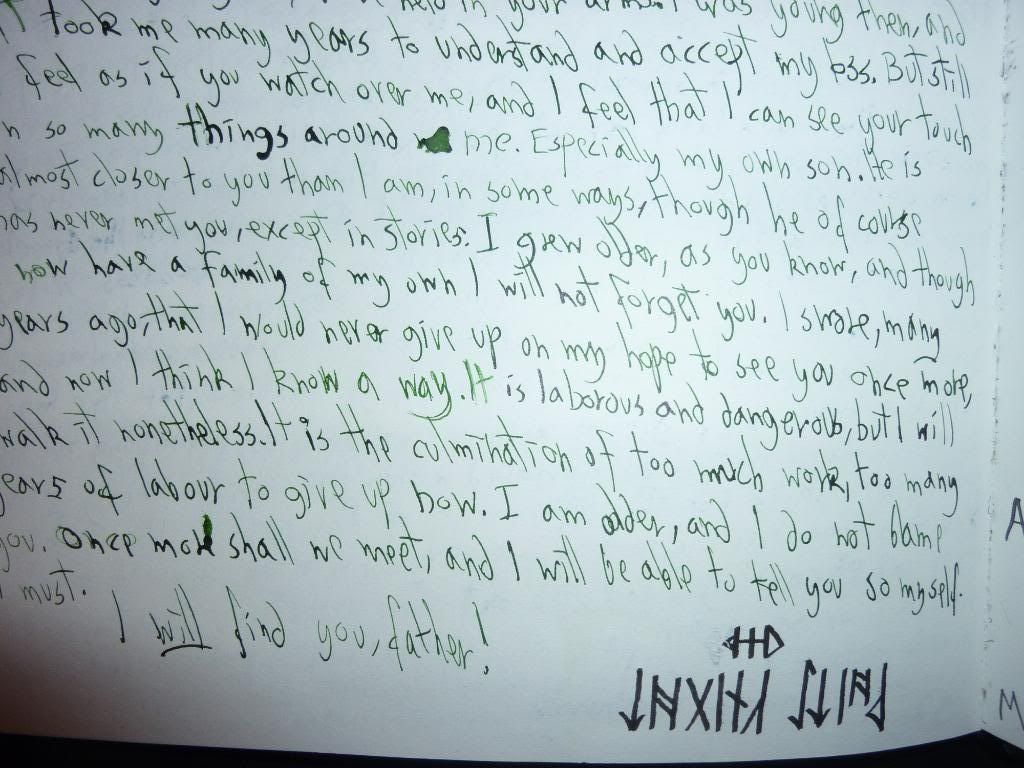 held in your arms. I was young then, and
took me many years to understand and accept my loss. But still
feel as if you watch over me, and I feel that I can see your touch
so many things around me. Especially my own son. He is
almost closer to you than I am, in some ways, though he of course
has never met you, except in stories. I grew older, as you know, and though
now have a family of my own I will not forget you. I swore, many
years ago, that I would never give up on my hope to see you once more,
and now I think I know a way. It is laborous and dangerous, but I will
walk it nonetheless. It is the culmination of too much work, too many
years of labour to give up now. I am older, and I do not blame
you. Once more shall we meet, and I will be able to tell you so myself.
must.
I will find you, father!
A
M